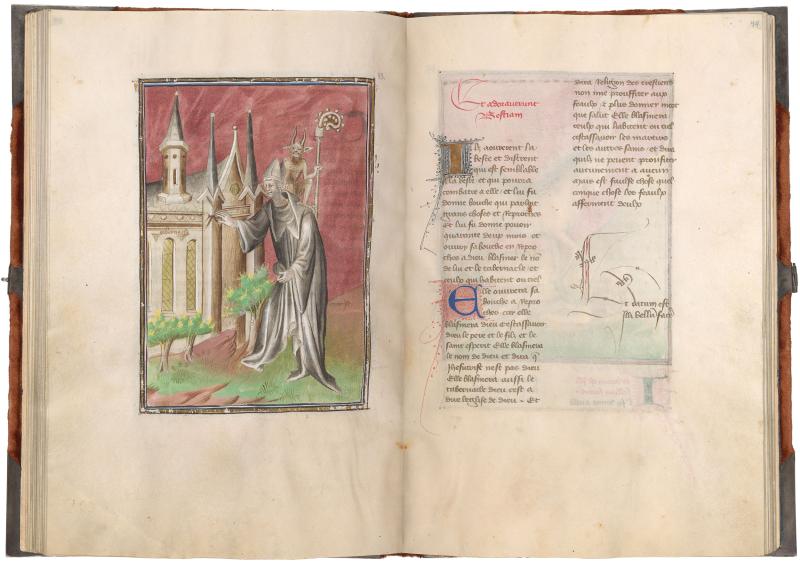 44
Et adoraverunt
Bestiam
Ilz aouverent la
beste et disdrent
qui est semblable
a la beste et qui pourra
combatre a elle et lui fu
donne bouche qui parloit
grans choses et Reproches
Et lui fu donne povoir
quarante deux mois et
ouvry sa bouche en Repro
ches a dieu blasmer le no
de lui et le tabernacle et
ceulx qui habitent ou ciel
Elle ouverra sa
bouche a Repro
ches car elle
blasmera dieu et estassavoir
dieu le pere et le filz et le
saint esperit Elle blasmera
le nom de dieu et dira q
Jhesucrist nest pas dieu
Elle blasmera aussi le
tabernacle dieu cest a
dire leglise de dieu Et
dira Religion des crestiens
non me prouffiter aux
feaulx et plus donner mort
que salut Elle blasmera
ceulx qui habitent ou ciel
cestassavoir les martires
et les autres sains et dira
quilz ne pevent prouffiter
aucunement a aucun
mais est faulse chose quel
conque chose les feaulx
afferment deulx
Et datum est
illi bellum face